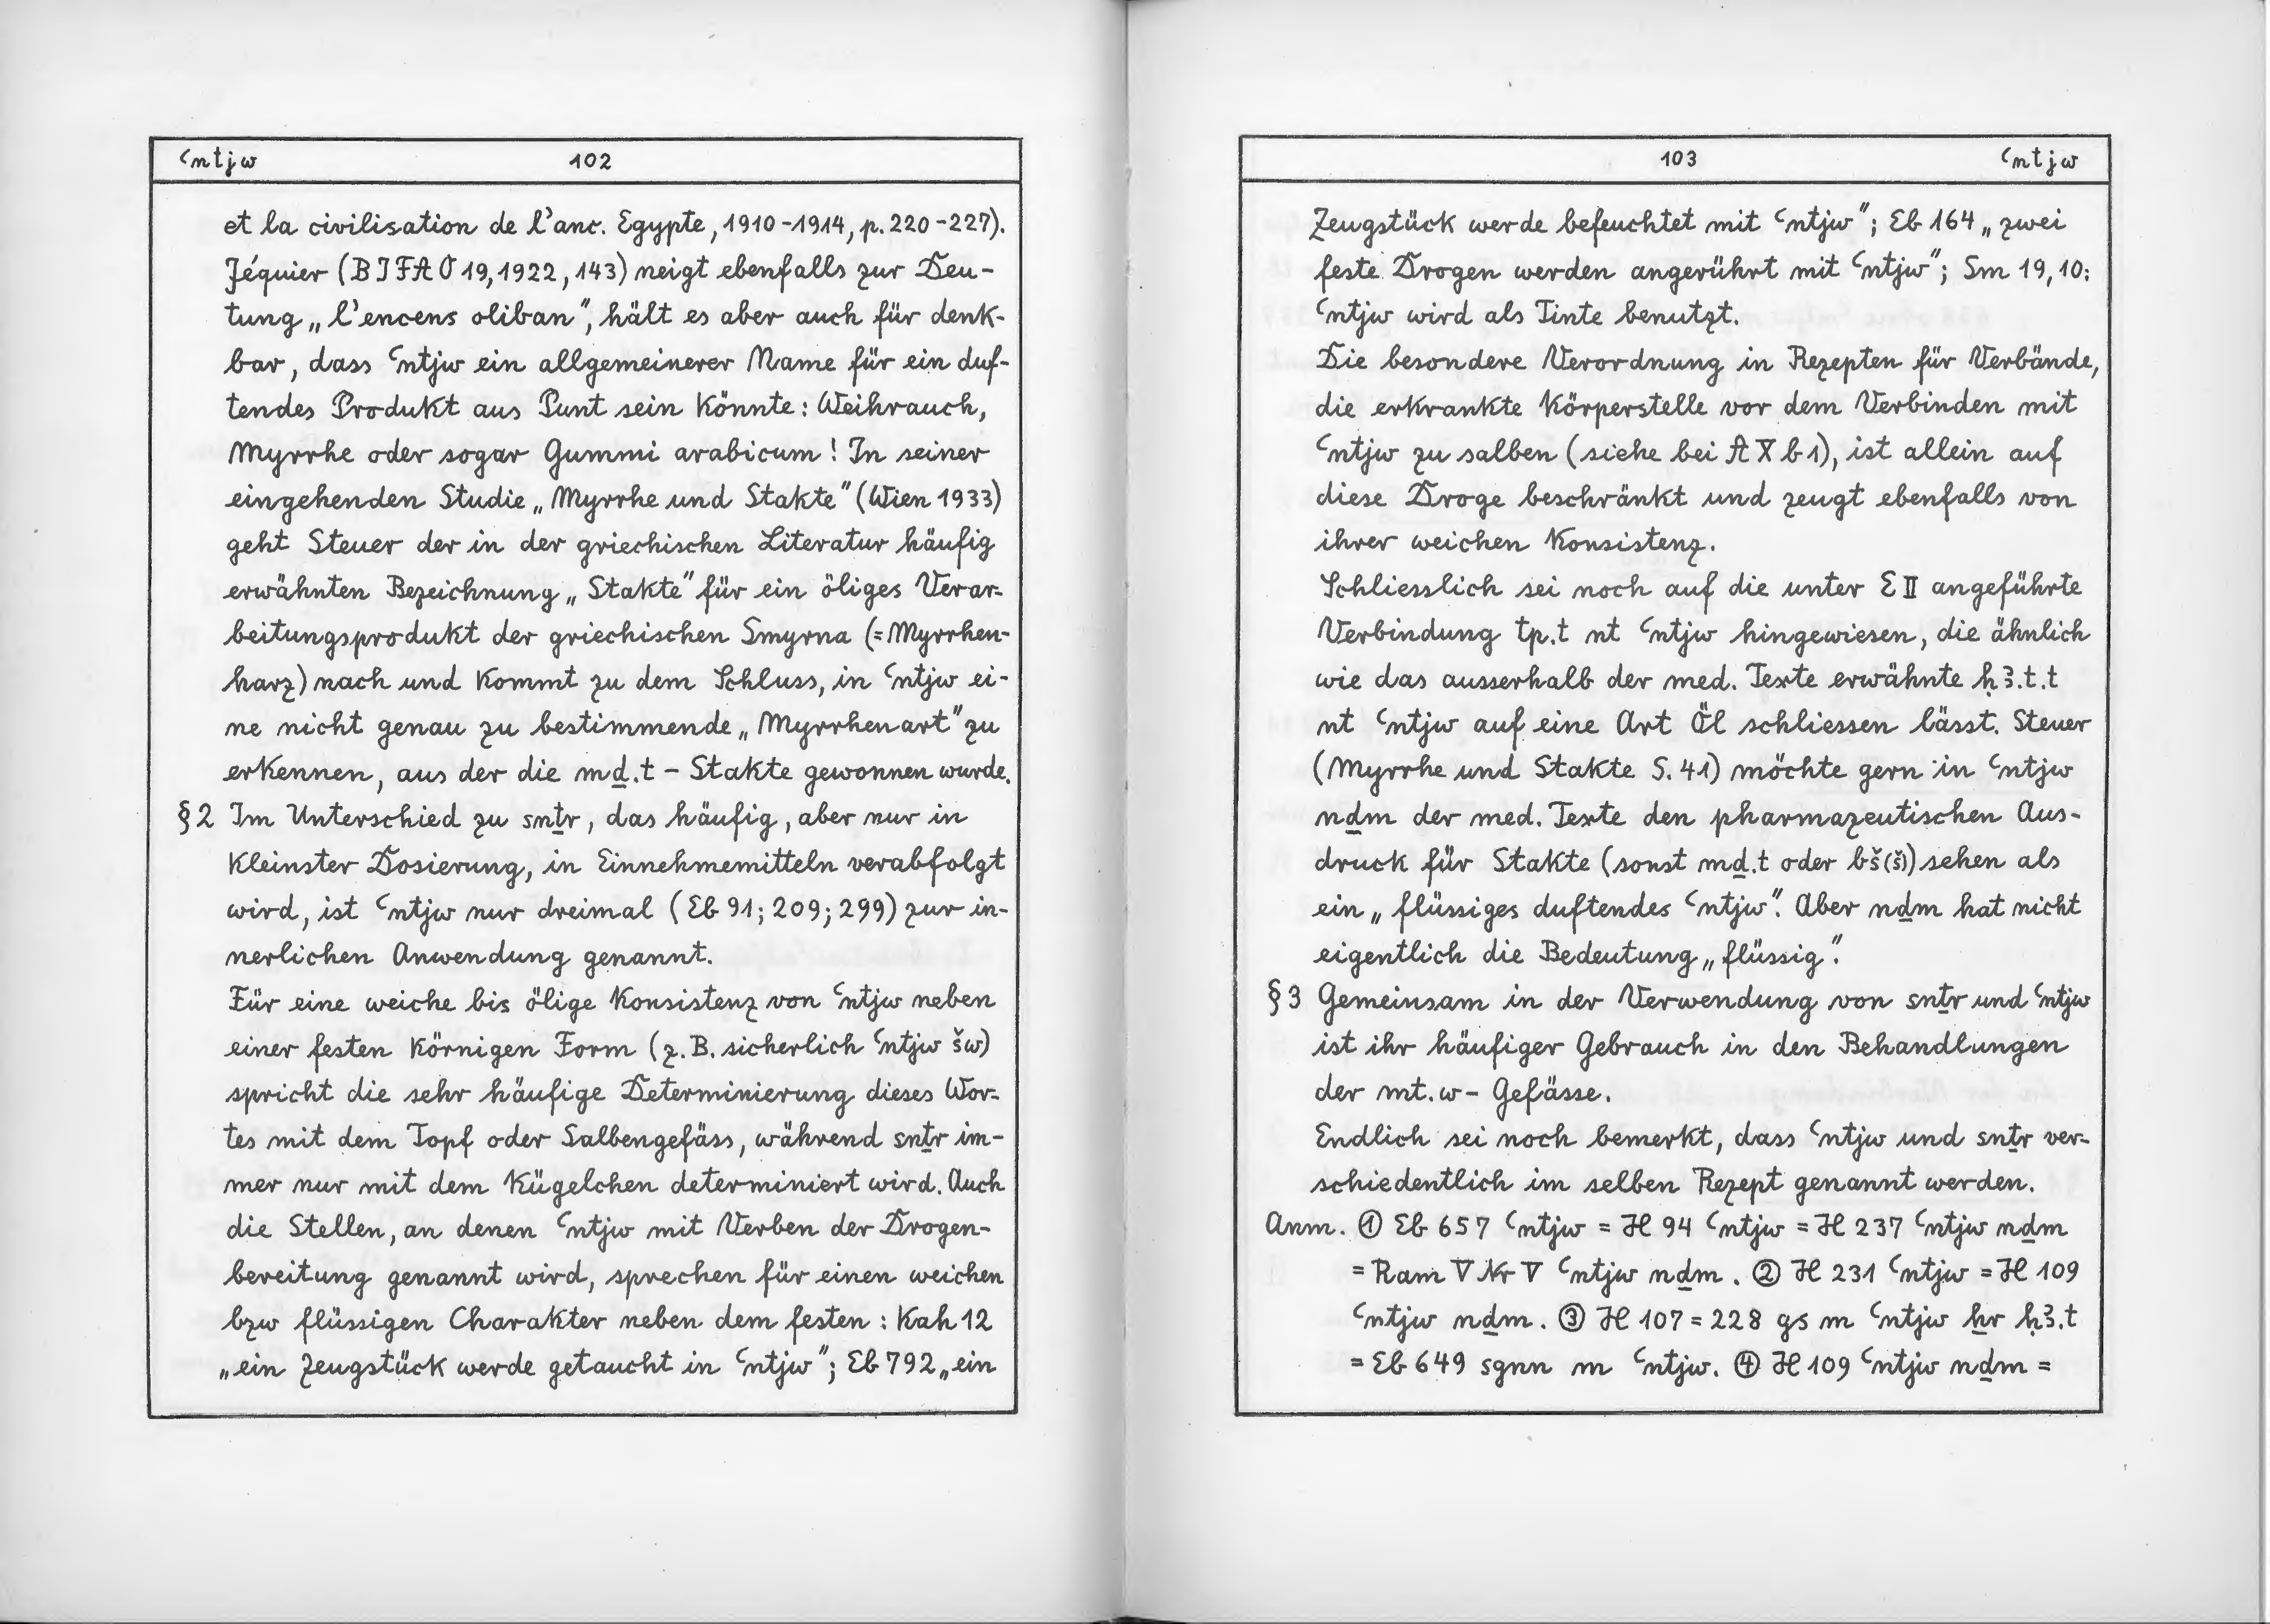 ꜥntjw 102
et la civilisation de l'anc. Egypte, 1910-1914, p. 220-227).
Jéquier (BIFAO 19, 1922, 143) neigt ebenfalls zur Deu-
tung „l'encens oliban", hält es aber auch für denk-
bar, dass ꜥntjw ein allgemeinerer Name für ein duf-
tendes Produkt aus Punt sein könnte: Weihrauch,
Myrrhe oder sogar Gummi arabicum! In seiner
eingehenden Studie „Myrrhe und Stakte" (Wien 1933)
geht Steuer der in der griechischen Literatur häufig
erwähnten Bezeichnung „Stakte" für ein öliges Verar-
beitungsprodukt der griechischen Smyrna (=Myrrhen-
harz) nach und kommt zu dem Schluss, in ꜥntjw ei-
ne nicht genau zu bestimmende „Myrrhenart" zu
erkennen, aus der die mḏ.t - Stakte gewonnen wurde.
§2 Im Unterschied zu snṯr, das häufig, aber nur in
kleinster Dosierung, in Einnehmemitteln verabfolgt
wird, ist ꜥntjw nur dreimal (Eb 91; 209; 299) zur in-
nerlichen Anwendung genannt.
Für eine weiche bis ölige Konsistenz von ꜥntjw neben
einer festen körnigen Form (z.B. sicherlich ꜥntjw šw)
spricht die sehr häufige Determinierung dieses Wor-
tes mit dem Topf oder Salbengefäss, während snṯr im-
mer nur mit dem Kügelchen determiniert wird. Auch
die Stellen, an denen ꜥntjw mit Verben der Drogen-
bereitung genannt wird, sprechen für einen weichen
bzw flüssigen Charakter neben dem festen: Kah 12
„ein Zeugstück werde getaucht in ꜥntjw"; Eb 792 „ein
103 ꜥntjw
Zeugstück werde befeuchtet mit ꜥntjw"; Eb 164 „zwei
feste Drogen werden angerührt mit ꜥntjw"; Sm 19,10:
ꜥntjw wird als Tinte benutzt.
Die besondere Verordnung in Rezepten für Verbände,
die erkrankte Körperstelle vor dem Verbinden mit
ꜥntjw zu salben (siehe bei A X b 1), ist allein auf
diese Droge beschränkt und zeugt ebenfalls von
ihrer weichen Konsistenz.
Schliesslich sei noch auf die unter E II angeführte
Verbindung tp.t nt ꜥntjw hingewiesen, die ähnlich
wie das ausserhalb der med. Texte erwähnte ḥꜣ.t.t
nt ꜥntjw auf eine Art Öl schliessen lässt. Steuer
(Myrrhe und Stakte S. 41) möchte gern in ꜥntjw
nḏm der med. Texte den pharmazeutischen Aus-
druck für Stakte (sonst mḏ.t oder bš(š)) sehen als
ein „flüssiges duftendes ꜥntjw". Aber nḏm hat nicht
eigentlich die Bedeutung „flüssig".
§3 Gemeinsam in der Verwendung von snṯr und ꜥntjw
ist ihr häufiger Gebrauch in den Behandlungen
der mt.w- Gefässe.
Endlich sei noch bemerkt, dass ꜥntjw und snṯr ver-
schiedentlich im selben Rezept genannt werden.
Anm. ① Eb 657 ꜥntjw = H 94 ꜥntjw = H 237 ꜥntjw nḏm
= Ram V Nr V ꜥntjw nḏm. ② H 231 ꜥntjw = H 109
ꜥntjw nḏm. ③ H 107 = 228 gs m ꜥntjw ẖr ḥꜣ.t
= Eb 649 sgnn m ꜥntjw. ④ H 109 ꜥntjw nḏm =